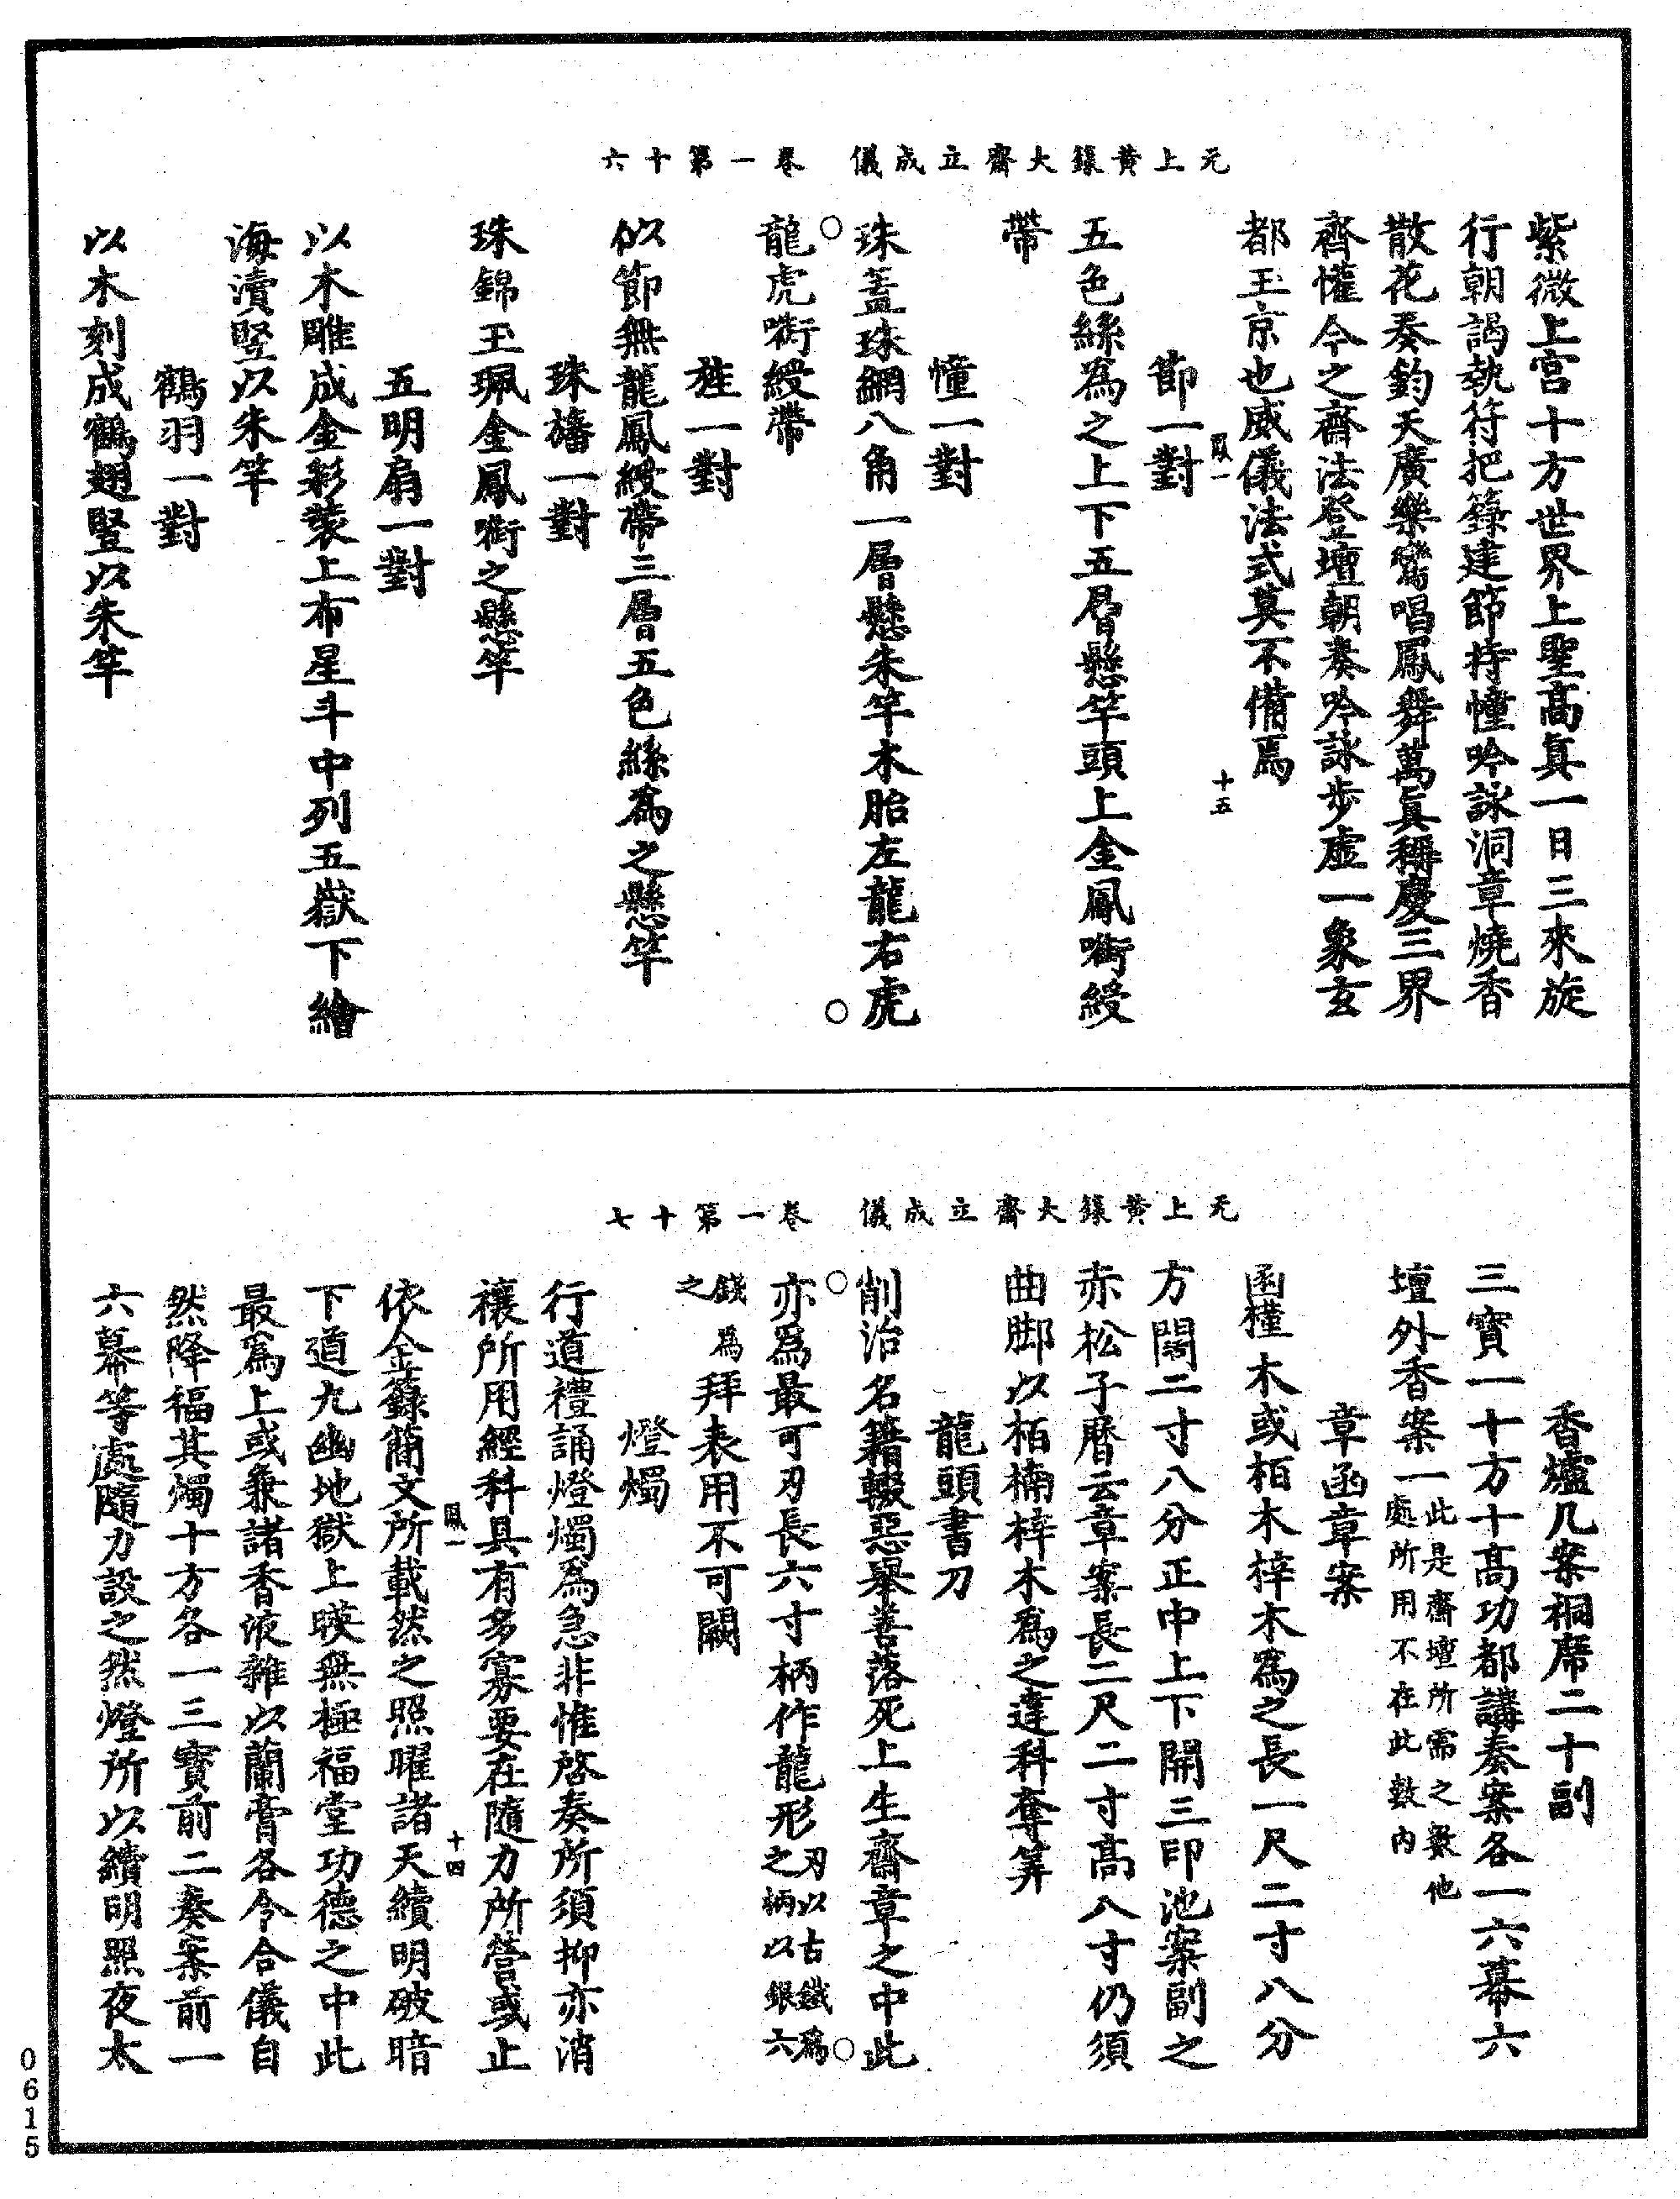 六十第一卷 儀成立齋大籙黃上无
紫微上宮十方世界上聖高真一日三來旋
行朝謁執符把籙建節持幢吟詠洞章燒香
散花奏鈞天廣樂鸞唱鳳舞萬真稱慶三界
齊懽今之齋法登壇朝奏吟詠步虛一象玄
都玉京也威儀法式莫不備焉
鳳一 十五
節一對
五色絲為之上下五層懸竿頭上金鳳銜綬
帶
幢一對
珠蓋珠網八角一層懸朱竿木胎左龍右虎
龍虎銜綬帶
旌一對
似節無龍鳳綬帶三層五色絲為之懸竿
珠旛一對
珠錦玉珮金鳳銜之懸竿
五明扇一對
以木雕成金彩裝上布星斗中列五嶽下繪
海瀆竪以朱竿
鶴羽一對
以木刻成鶴翅竪以朱竿
七十第一卷 儀成立齋大籙黃上无
香爐几案裀席二十副
三寶一十方十高功都講奏案各一六幕六
壇外香案一此是齋壇所需之數他
處所用不在此數內
章函章案
函槿木或栢木梓木為之長一尺二寸八分
方闊二寸八分正中上下開三印池案副之
赤松子曆云章案長二尺二寸高八寸仍須
曲脚以栢楠梓木為之違科奪筭
龍頭書刀
削治名籍輟惡舉善落死上生齋章之中此
亦為最可刃長六寸柄作龍形刃以古鐵為
之柄以銀六
錢為
之
拜表用不可闕
燈燭
行道禮誦燈燭為急非惟啓奏所須抑亦消
禳所用經科具有多寡要在隨力所營或止
鳳一 十四
依金籙簡文所載然之照曜諸天續明破暗
下道九幽地獄上暎無極福堂功德之中此
最為上或兼諸香液雜以蘭膏各令合儀自
然降福其燭十方各一三寶前二奏案前一
六幕等處隨力設之然燈所以續明照夜太
0615